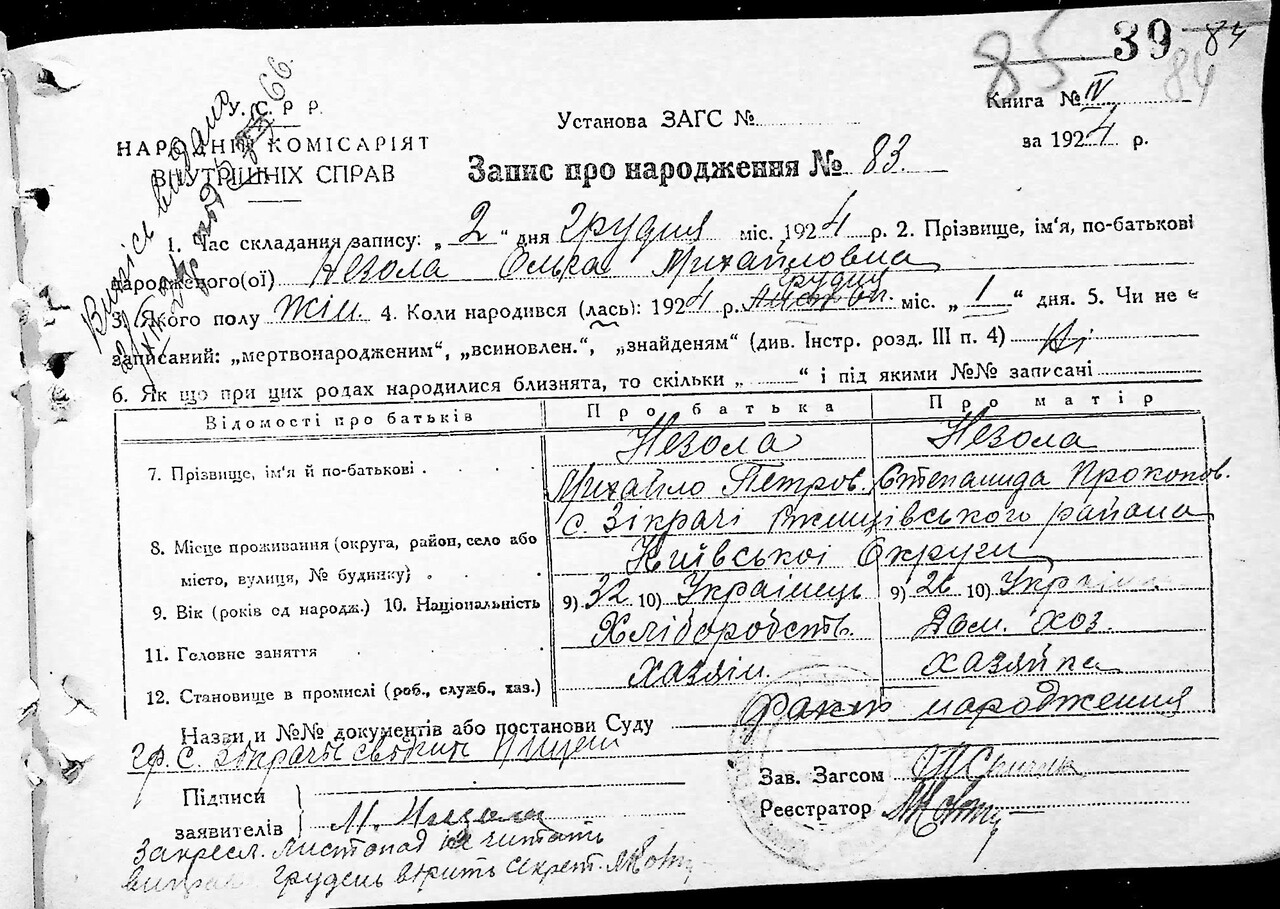 85 39 84
84
У. С. Р Р.
НАРОДНІЙ КОМІСАРІЯТ
ВНУТРІШНІХ СПРАВ
Випись видано
66
Установа ЗАГС №
Книга № IV
за 1924 р.
Запис про народження № 83.
1. Час складання запису: „ 2 “ дня Грудня міс. 1924 р. 2. Прізвище, ім‘я, по-батькові
народженого(ої) Незола Олька Михайловна
грудня
3. Якого полу Жін. 4. Коли народився (лась): 1924 р. Листоп. міс. „ 1 “ дня. 5. Чи не є
записаний: „мертвонародженим“, „всиновлен.“, „знайденям“ (див. Інстр. розд. III п. 4) Ні
6. Як що при цих родах народилися близнята, то скільки „ “ і під якими №№ записані
Відомості про батьків Про батька Про матір
7. Прізвище, ім‘я й по-батькові Незола Незола
Михайло Петров. Степанида Прокопов.
8. Місце проживання (округа, район, село або с. Зікрачі Ржищівського района
місто, вулиця, № будинку) Київської Округи
9. Вік (років од народж.) 10. Національність 9) 32 10) Українець 9) 26 10)
11. Головне заняття Хліборобств. Дом. хоз.
12. Становище в промислі (роб., служб., хаз.) хазяін. хазяйка
Назви и №№ документів або постанови Суду факт народження
гр. с. Зікрачі
Підписи
заявителів М.
Зав. Загсом
Реєстратор
Закресл. Листопад не читать
Грудень вірить Секрет.